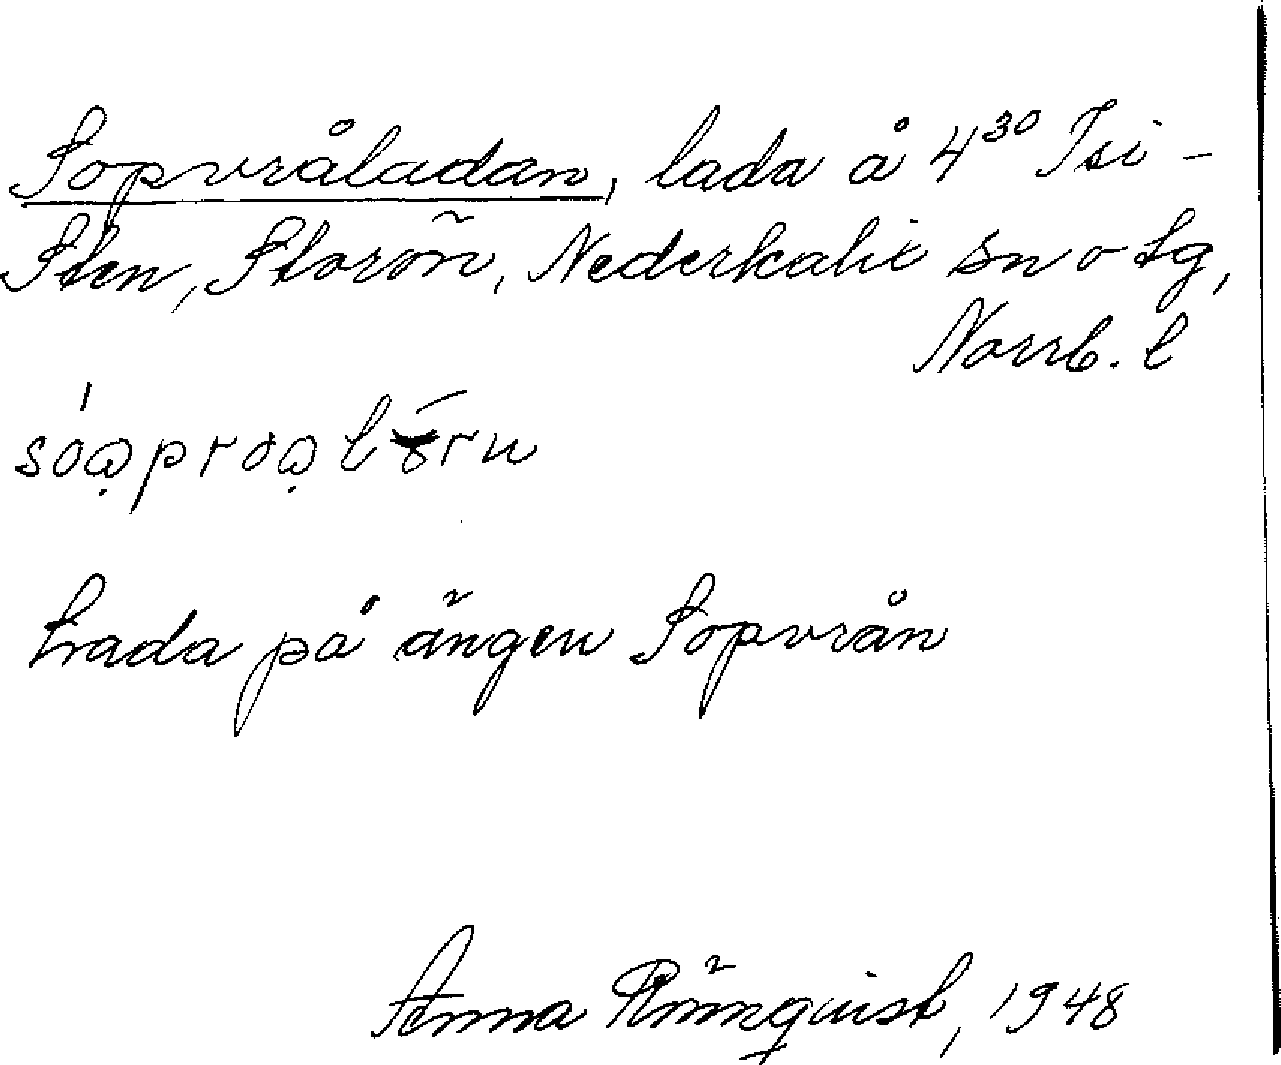 Sopvråladan, lada å 4³⁰ Isi-
Sten, Storön, Nederkalix sn o tg,
Norrb. l
Lada på ängen Sopvrån
Anna Rönnquist, 1948